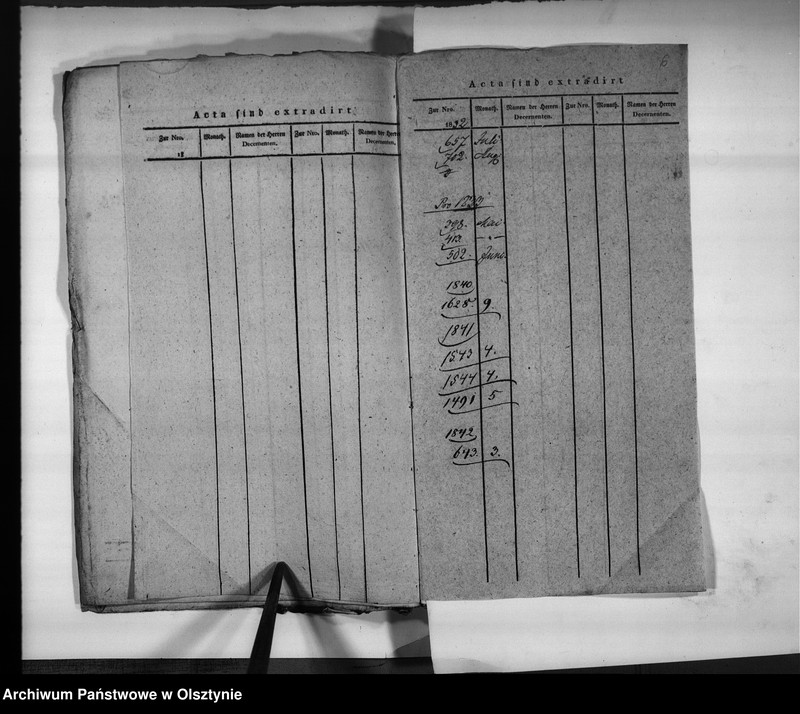 Acta ſind extradirt
Zur Nro. Monath. Namen der Herren Decernenten. Zur Nro. Monath. Namen der Herren Decernenten.
18
6
Acta ſind extradirt
Zur Nro. Monath. Namen der Herren Decernenten. Zur Nro. Monath. Namen der Herren Decernenten.
1832
657 Juli
702. Aug
Pro
298. Mai
413. —"—
502. Juni.
1840
1628. 9.
1841
1543 4.
1544 4.
1491 5
1842
643. 3.
Archiwum Państwowe w Olsztynie